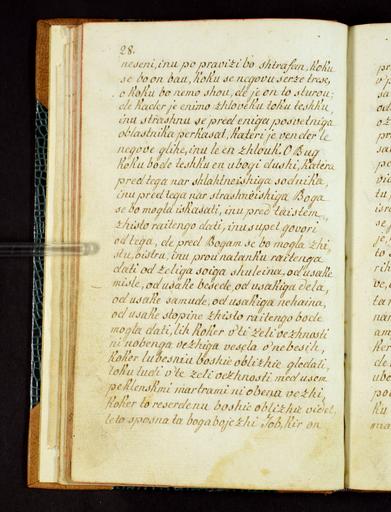 28.
neseni, inu po pravizi bo shtrafen, koku
se bo on bau, koku se negovu serze trese,
o koku bo nemo shou, de je on to sturou;
de kader je enimo zhloveku toku teshku,
inu strashnu se pred eniga posvetniga
oblastnika perkasat, kateri je vender le
negove glihe, inu le en zhlouk. O Bug
koku bode teshku en ubogi dushi, katera
pred tega nar shlahtneishiga sodnika,
inu pred tega nar strashneishiga Boga
se bo mogla iskasati, inu pred taistem
zhisto raitengo dati, inu supel govori
od tega, de pred Bogam se bo mogla zhi,,
stu, bistru, inu prou natanku raitenga
dati od zeliga soiga shuleina, od usake
misle, od usake besede, od usakiga dela,
od usake samude, od usakiga nehaina,
od usake stopine zhisto raitengo bode
mogla dati, lih koker v'ti zeli vezhnosti
ni nobenga vezhiga vesela v'nebesih,
koker lubesniu boshie oblizhie gledati,
toku tudi v'te zeli vezhnosti med usem
peklenskmi martrami ni obena vezhi,
koker to reserdenu boshie oblizhie videt,
leto sposna ta bogabojezhi Job, kir on